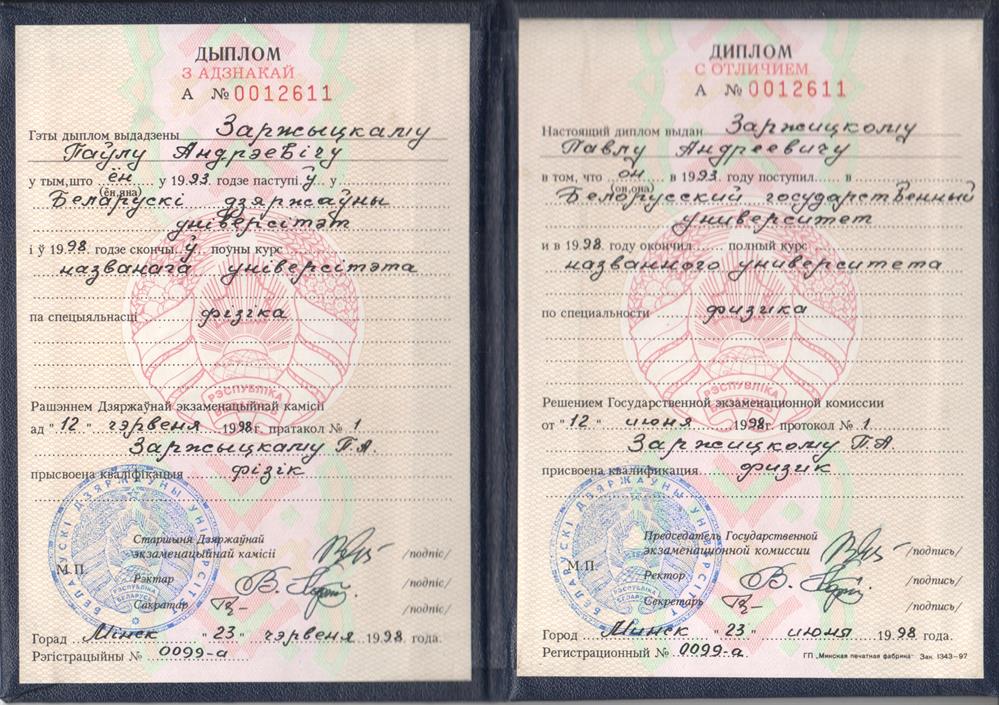 ДЫПЛОМ
З АДЗНАКАЙ
А № 0012611
Гэты дыплом выдадзены Заржыцкаму
Паўлу Андрэевічу
у тым, што ён у 1993 годзе паступіў у
(ён, яна)
Беларускі дзяржаўны
ўніверсітэт
і ў 1998 годзе скончыў поўны курс
названага універсітэта
па спецыяльнасці фізіка
РЭСПУБЛІКА
Рашэннем Дзяржаўнай экзаменацыйнай камісіі
ад "12" чэрвеня 1998г. пратакол № 1
Заржыцкаму П.А.
прысвоена кваліфікацыя фізік
Старшыня Дзяржаўнай
экзаменацыйнай камісіі /подпіс/
М.П.
Рэктар /подпіс/
Сакратар /подпіс/
БЕЛАРУСКІ ДЗЯРЖАЎНЫ УНІВЕРСІТЭТ
РЭСПУБЛІКА
БЕЛАРУСЬ
Горад Мінск "23" чэрвеня 1998 года.
Рэгістрацыйны № 0099-а
ДИПЛОМ
С ОТЛИЧИЕМ
А № 0012611
Настоящий диплом выдан Заржицкому
Павлу Андреевичу
в том, что он в 1993 году поступил в
(он, она)
Белорусский государственный
университет
и в 1998 году окончил полный курс
названного университета
по специальности физика
РЭСПУБЛІКА
Решением Государственной экзаменационной комиссии
от "12" июня 1998г. протокол № 1
Заржицкому П.А.
присвоена квалификация физик
Председатель Государственной
экзаменационной комиссии /подпись/
М.П.
Ректор /подпись/
Секретарь /подпись/
БЕЛАРУСКІ ДЗЯРЖАЎНЫ УНІВЕРСІТЭТ
РЭСПУБЛІКА
БЕЛАРУСЬ
Город Минск "23" июня 1998 года.
Регистрационный № 0099-а
ГП „Минская печатная фабрика" Зак. 1343-97